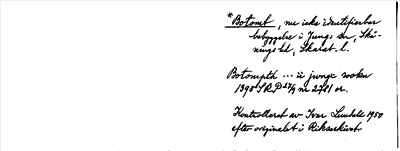 * Botomt, nu icke identifierbar
bebyggelse i Jungs sn, Skå-
nings hd, Skarab. l.
Botompth --- ii junge sookn
1390 SRP 27/9 nr 2781 or.
Kontrollerat av Ivar Lundahl 1950
efter originalet i Riksarkivet.